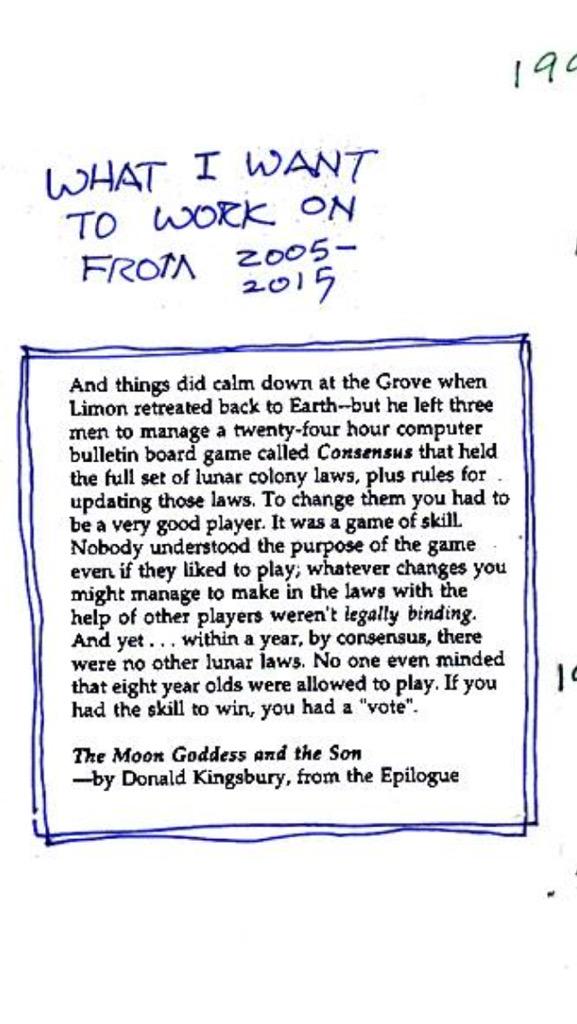 WHAT I WANT
TO WORK ON
FROM 2005-
2015
And things did calm down at the Grove when
Limon retreated back to Earth--but he left three
men to manage a twenty-four hour computer
bulletin board game called Consensus that held
the full set of lunar colony laws, plus rules for
updating those laws. To change them you had to
be a very good player. It was a game of skill.
Nobody understood the purpose of the game
even if they liked to play; whatever changes you
might manage to make in the laws with the
help of other players weren't legally binding.
And yet . . . within a year, by consensus, there
were no other lunar laws. No one even minded
that eight year olds were allowed to play. If you
had the skill to win, you had a "vote".
The Moon Goddess and the Son
—by Donald Kingsbury, from the Epilogue